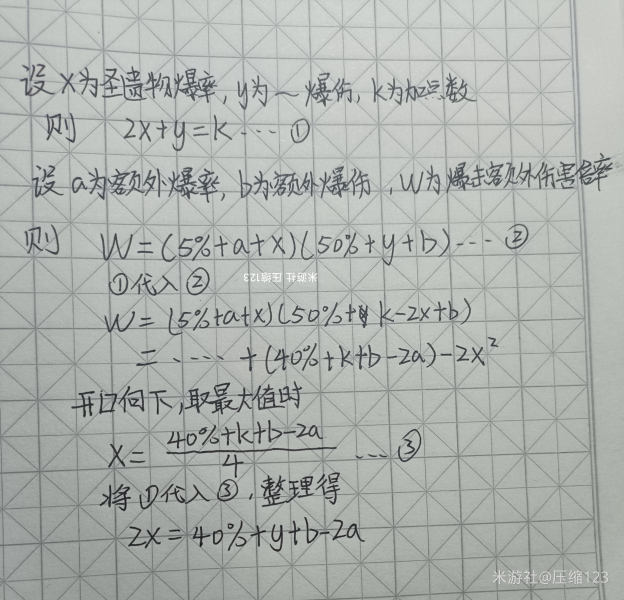 设 x为圣遗物爆率, y为~爆伤, k为加点数
则 2x+y=k ··· ①
设 a为额外爆率, b为额外爆伤, W为爆击额外伤害倍率
则 W=(5%+a+x)(50%+y+b) ··· ②
米游社 压缩123
①代入 ②
W=(5%+a+x)(50%+k-2x+b)
= ····· +(40%+k+b-2a)-2x²
开口向下, 取最大值时
x= (40%+k+b-2a)/4 ··· ③
将 ①代入 ③, 整理得
2x=40%+y+b-2a
米游社@压缩123